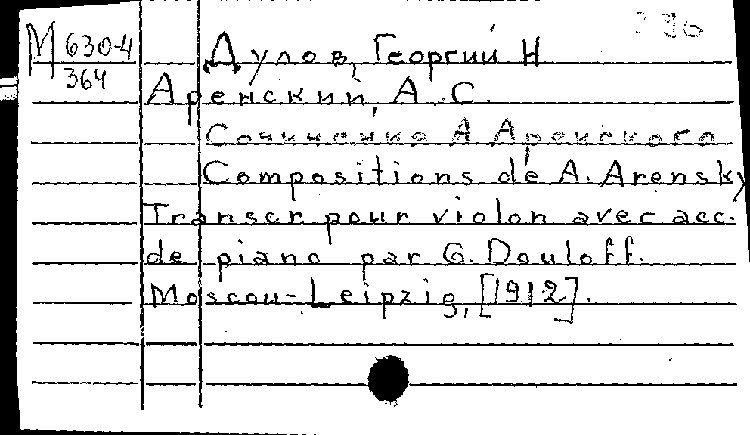 М 630-4
364
Дулов, Георгий Н
Аренский, А. С.
Сочинения А Аренского
Compositions de A. Arensky
Transcr pour violon avec acc.
de piano par G. Douloff.
Moscou-Leipzig, [1912].